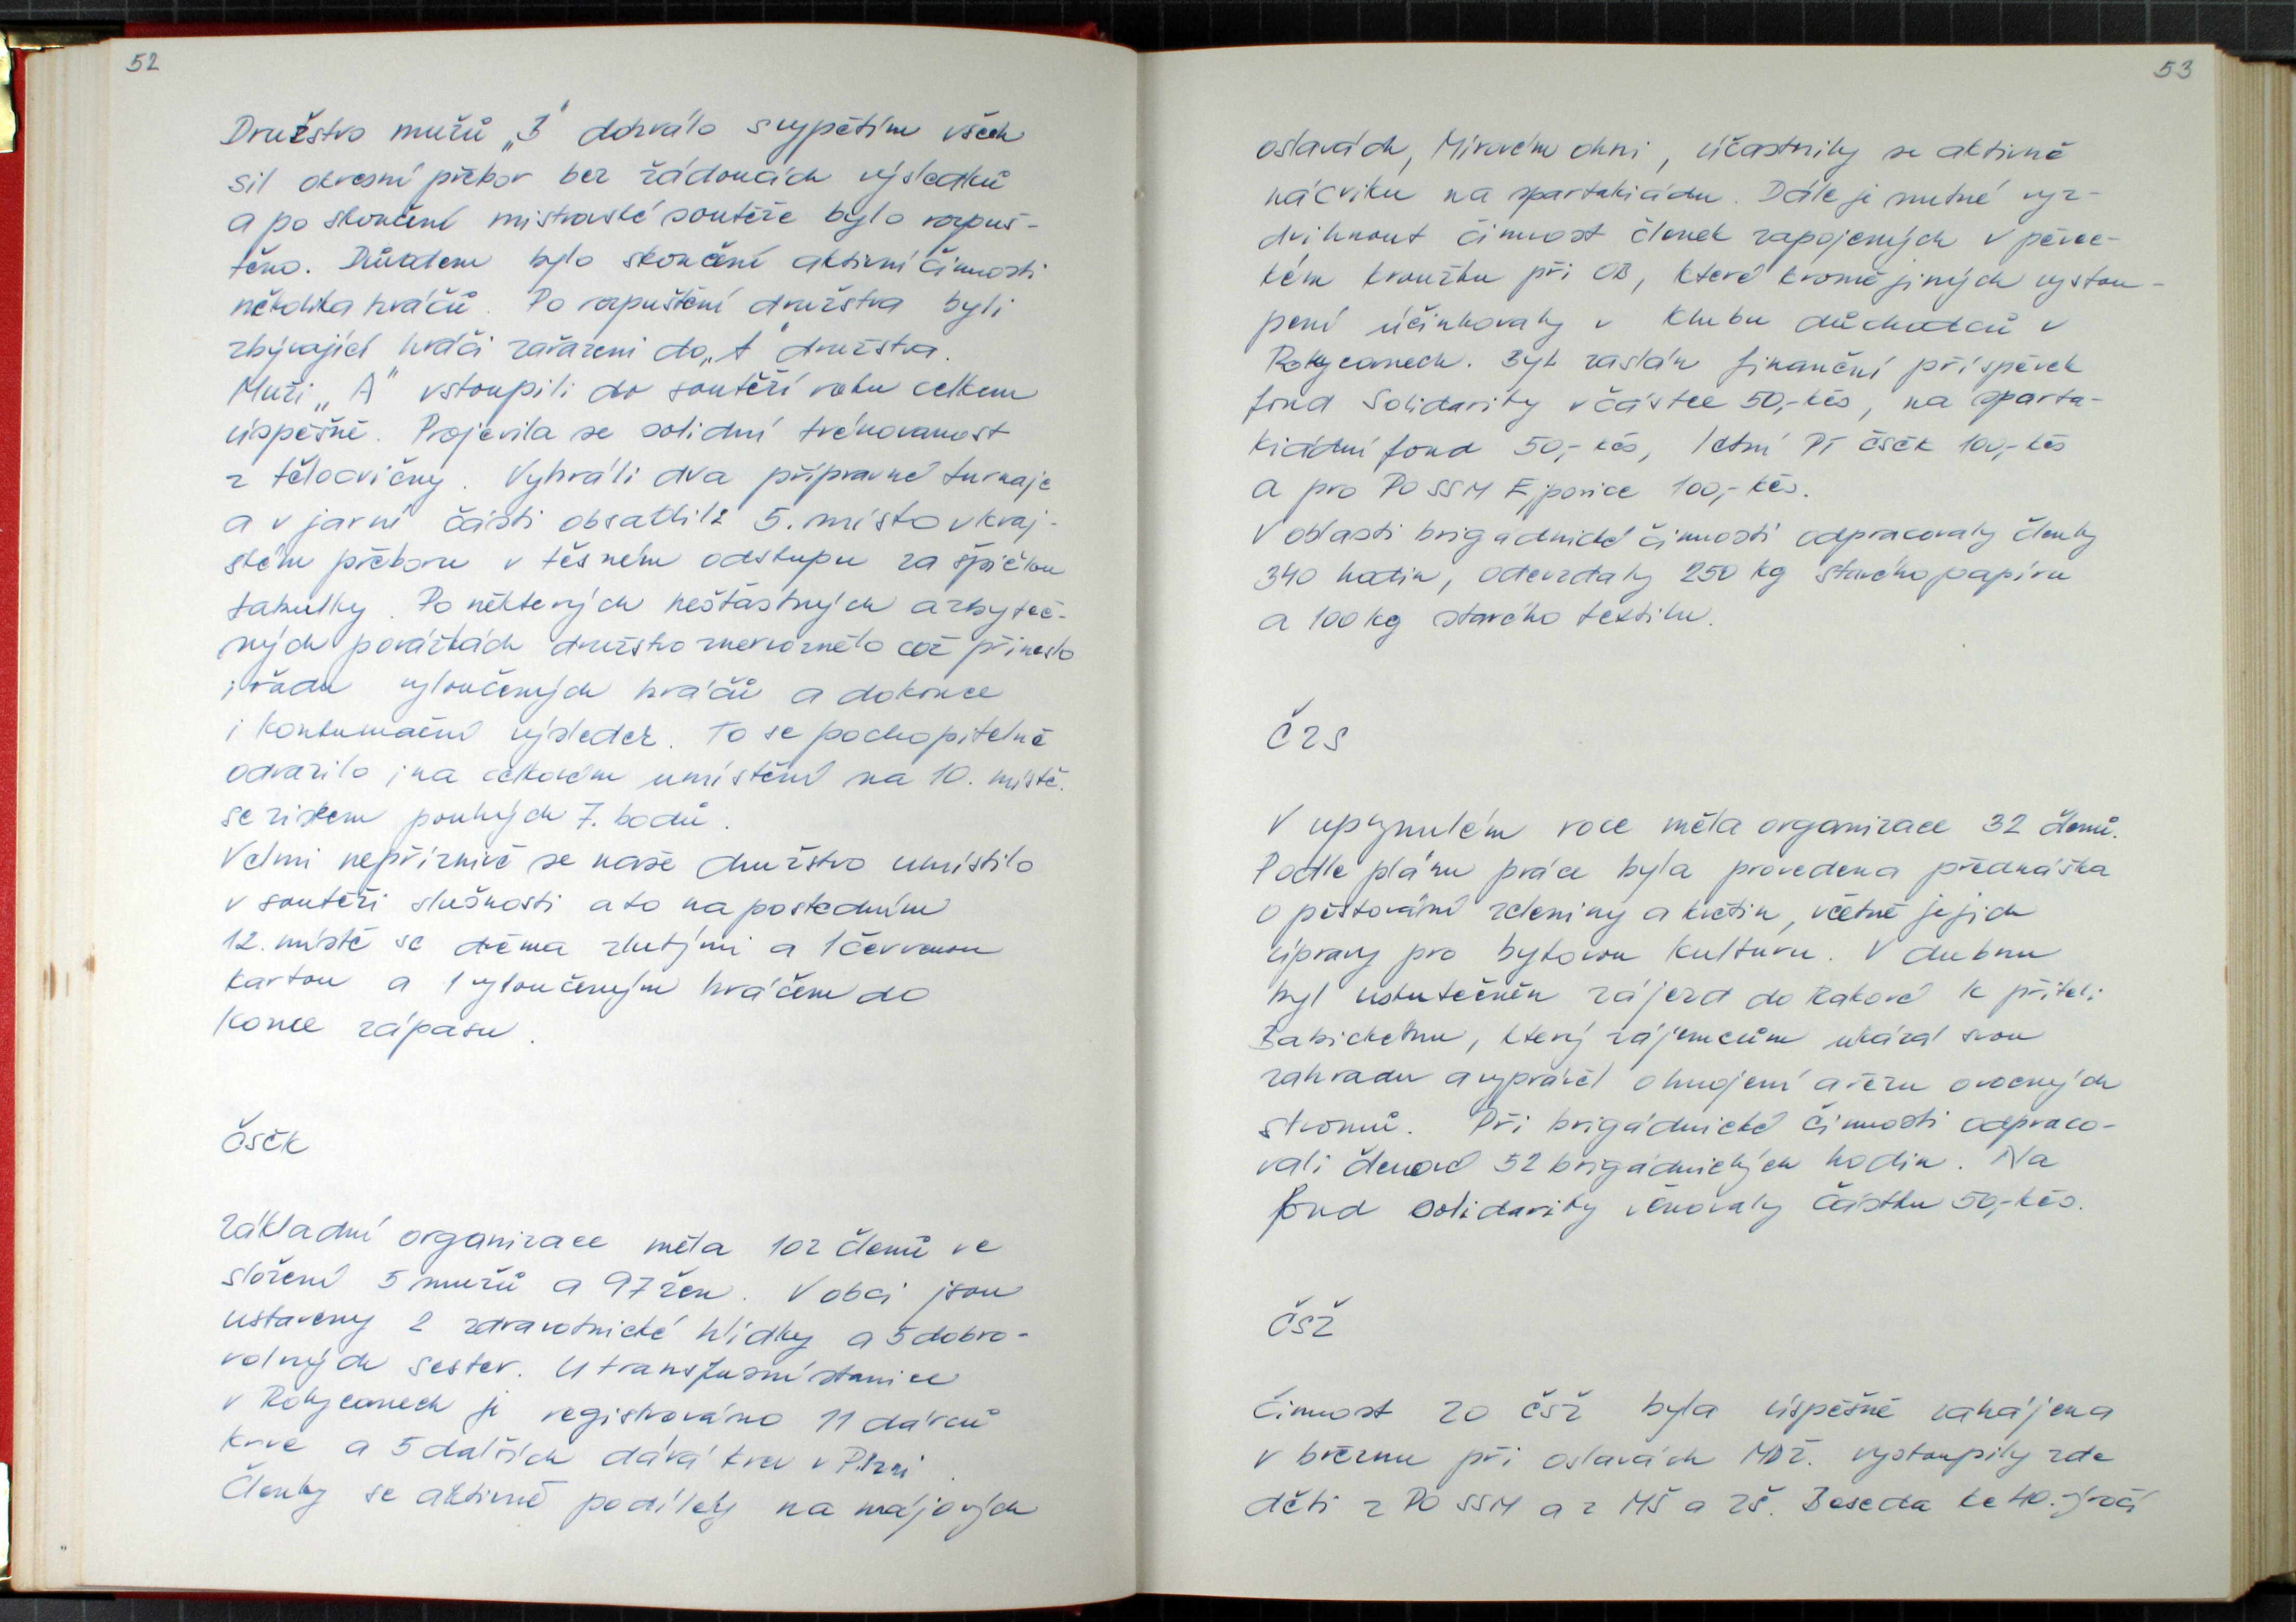 52
Družstvo mužů „B" dohrálo s vypětím všech
sil okresní přebor bez žádoucích výsledků
a po skončení mistrovské soutěže bylo rozpuš-
těno. Důvodem bylo skončení aktivní činnosti
několika hráčů. Po rozpuštění družstva byli
zbývající hráči zařazeni do „A" družstva.
Muži „A" vstoupili do soutěží roku celkem
úspěšně. Projevila se solidní trénovanost
z tělocvičny. Vyhráli dva přípravné turnaje
a v jarní části obsadili 5. místo v kraj-
ském přeboru v těsném odstupu za špičkou
tabulky. Po některých nešťastných a zbyteč-
ných porážkách družstvo znervóznělo což přineslo
i řadu vyloučených hráčů a dokonce
i kontumační výsledek. To se pochopitelně
odrazilo i na celkovém umístění na 10. místě.
se ziskem pouhých 7. bodů.
Velmi nepříznivě se naše družstvo umístilo
v soutěži slušnosti a to na posledním
12. místě se dvěma žlutými a 1 červenou
kartou a 1 vyloučeným hráčem do
konce zápasu.
ČSČK
Základní organizace měla 102 členů ve
složení 5 mužů a 97 žen. V obci jsou
ustaveny 2 zdravotnické hlídky a 5 dobro-
volných sester. U transfusní stanice
v Rokycanech je registrováno 11 dárců
krve a 5 dalších dává krev v Plzni.
Členky se aktivně podílely na májových
53
oslavách, Mírovém ohni, účastnily se aktivně
nácviku na spartakiádu. Dále je nutné vyz-
dvihnout činnost členek zapojených v pěvec-
kém kroužku při OB, které kromě jiných vystou-
pení účinkovaly v Klubu důchodců v
Rokycanech. Byl zaslán finanční příspěvek
fond Solidarity v částce 50,- kčs, na sparta-
kiádní fond 50,- kčs, letní PT ČSČK 100,- kčs
a pro PO SSM Ejpovice 100,- kčs.
V oblasti brigádnické činnosti odpracovaly členky
340 hodin, odevzdaly 250 kg starého papíru
a 100 kg starého textilu.
ČZS
V uplynulém roce měla organizace 32 členů.
Podle plánu práce byla provedena přednáška
o pěstování zeleniny a květin, včetně jejich
úpravy pro bytovou kulturu. V dubnu
byl uskutečněn zájezd do Rakové k příteli
Babickému, který zájemcům ukázal svou
zahradu a vyprávěl o hnojení a řezu ovocných
stromů. Při brigádnické činnosti odpraco-
vali členové 52 brigádnických hodin. Na
fond solidarity věnovaly částku 50,- kčs.
ČSŽ
Činnost ZO ČSŽ byla úspěšně zahájena
v březnu při oslavách MDŽ. vystoupily zde
děti z PO SSM a z MŠ a ZŠ. Beseda ke 40. výročí